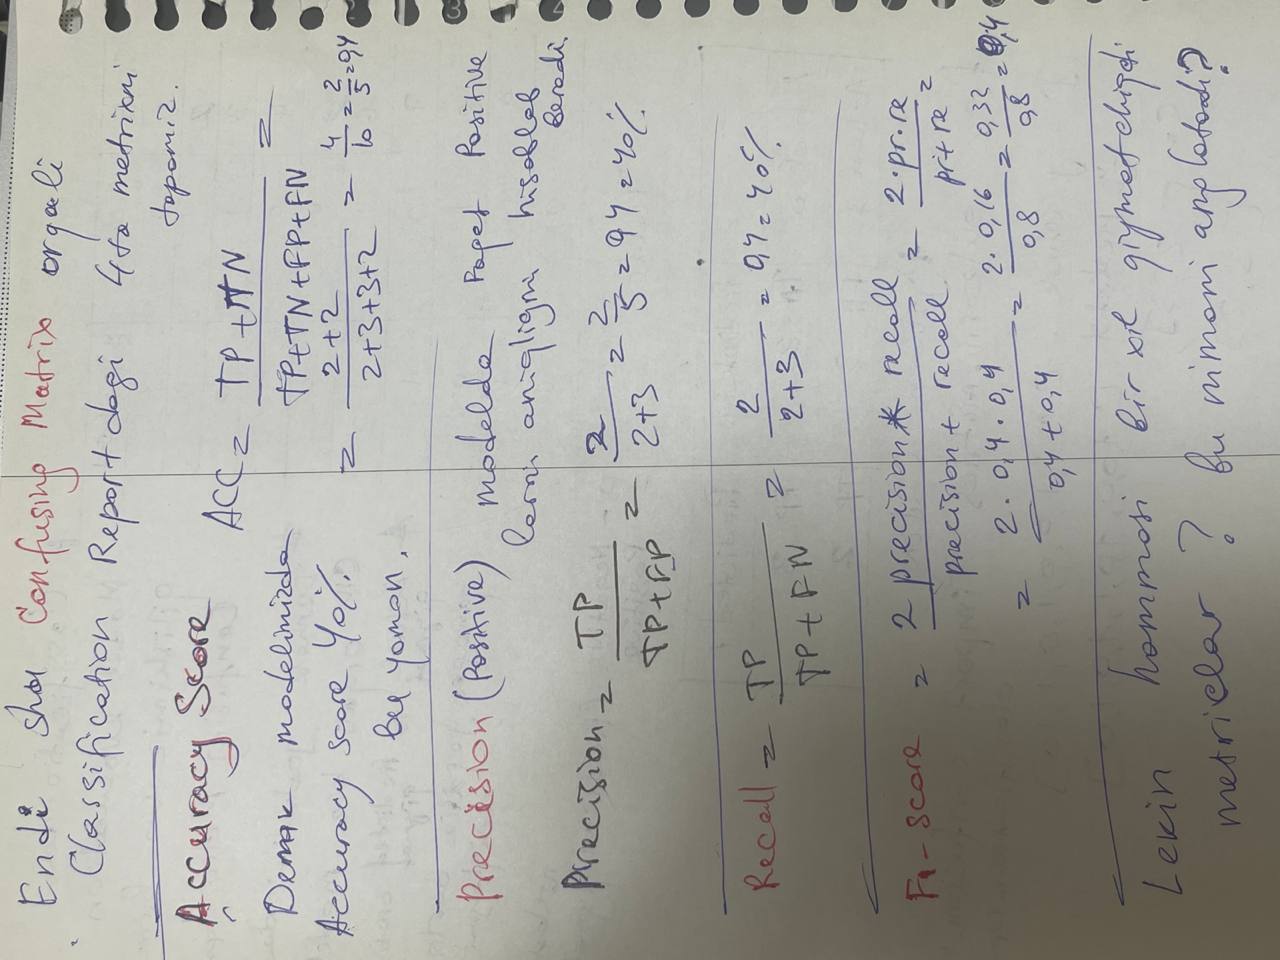 Endi shu Confusing Matrix orqali
Classification Report dagi 4ta metrikani
topamiz.
Accuracy Score
ACC = TP+TN / TP+TN+FP+FN =
Demak modelimizda
Accuracy score 40%
bu yomon.
= 2+2 / 2+3+3+2 = 4/10 = 2/5 = 0,4
Precision (Positive) modelda faqat Positive
larni aniqligini hisoblab
beradi.
Precision = TP / TP+FP = 2 / 2+3 = 2/5 = 0,4 = 40%
Recall = TP / TP+FN = 2 / 2+3 = 0,4 = 40%
F1-score = 2 precision * recall / precision + recall = 2·pr·re / pr+re =
= 2·0,4·0,4 / 0,4+0,4 = 2·0,16 / 0,8 = 0,32 / 0,8 = 0,4
Lekin hammasi bir xil qiymat chiqdi
metriclar ? bu nimani anglatadi?